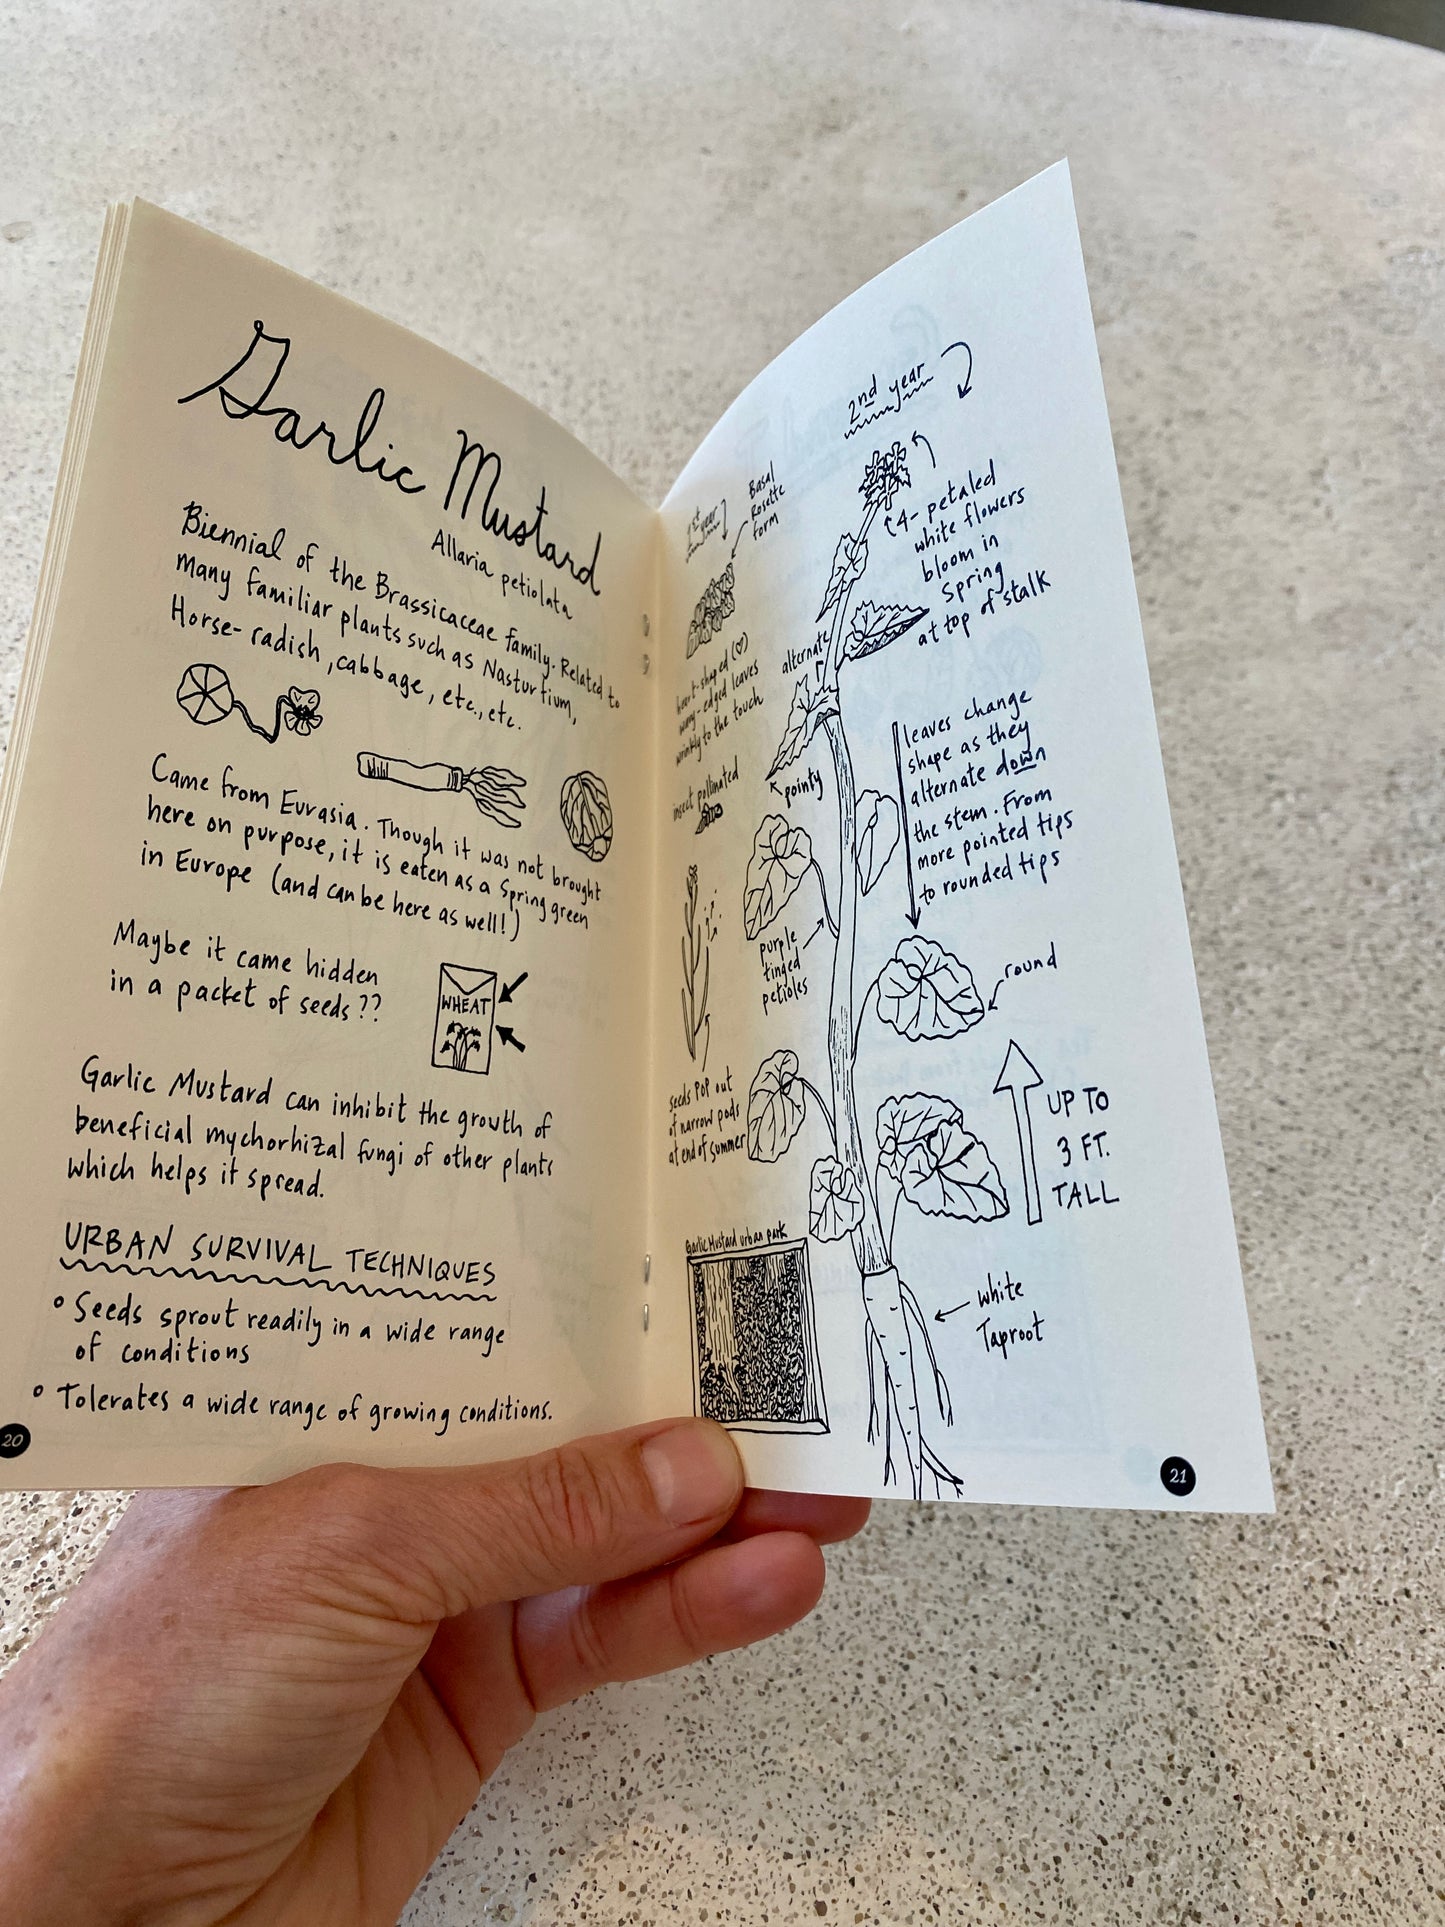 Garlic Mustard
Allaria petiolata
Biennial of the Brassicaceae family. Related to
many familiar plants such as Nasturtium,
Horse-radish, cabbage, etc., etc.
Came from Eurasia. Though it was not brought
here on purpose, it is eaten as a Spring green
in Europe (and can be here as well!)
Maybe it came hidden
in a packet of seeds??
WHEAT
Garlic Mustard can inhibit the growth of
beneficial mychorhizal fungi of other plants
which helps it spread.
URBAN SURVIVAL TECHNIQUES
° Seeds sprout readily in a wide range
of conditions
° Tolerates a wide range of growing conditions.
20
1st year
Basal
Rosette
form
heart-shaped (♡)
wavy-edged leaves
wrinkly to the touch
insect pollinated
seeds POP out
of narrow pods
at end of summer
Garlic Mustard urban park
2nd year
4-petaled
white flowers
bloom in
Spring
at top of stalk
alternate
pointy
leaves change
shape as they
alternate down
the stem. From
more pointed tips
to rounded tips
purple
tinged
petioles
round
UP TO
3 FT.
TALL
white
Taproot
21